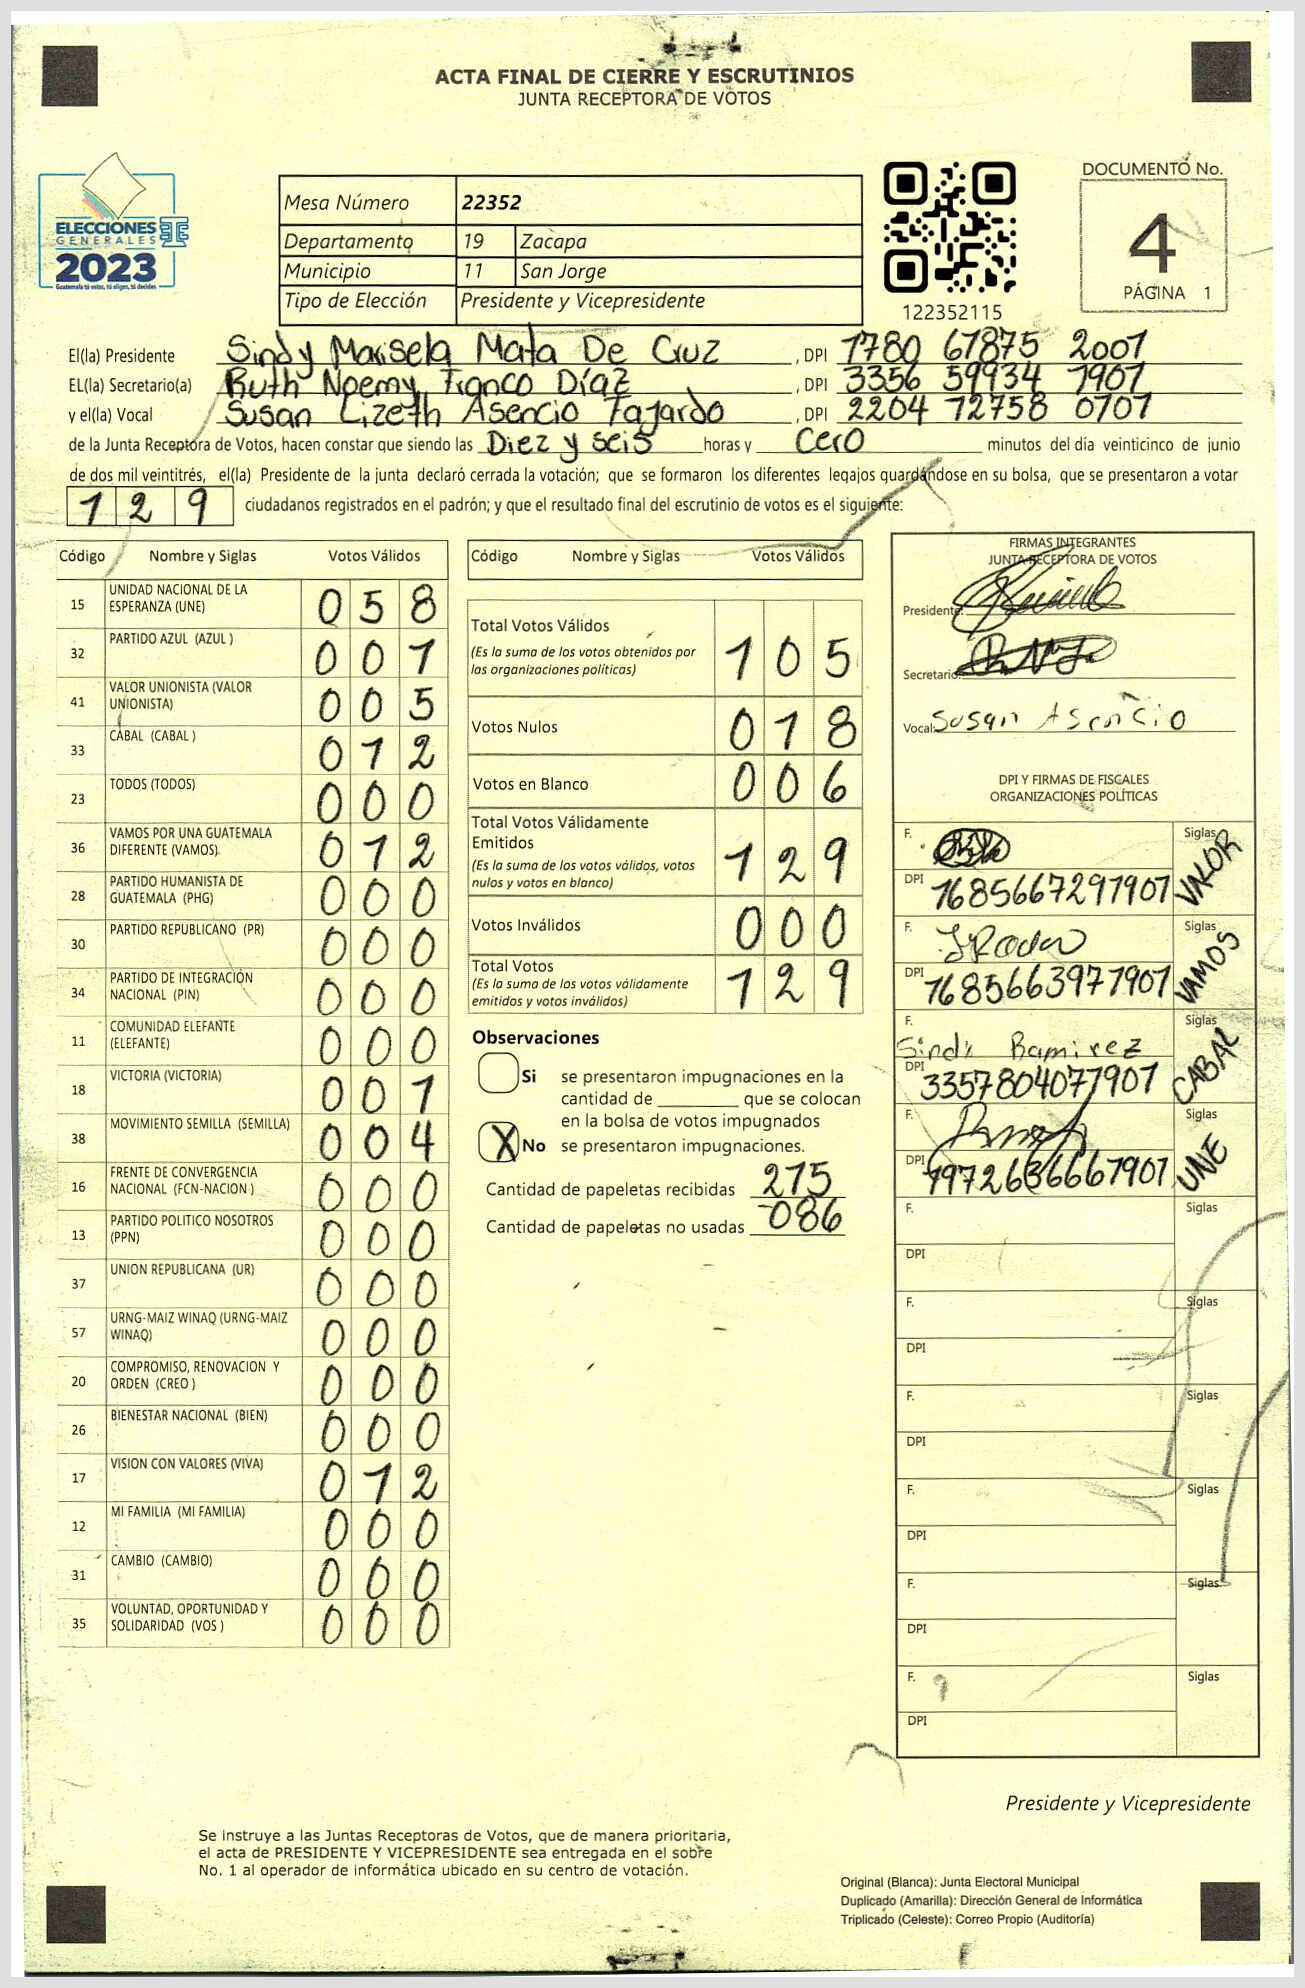 ACTA FINAL DE CIERRE Y ESCRUTINIOS
JUNTA RECEPTORA DE VOTOS
ELECCIONES
GENERALES
2023
Guatemala tú votas, tú eliges, tú decides
Mesa Número 22352
Departamento 19 Zacapa
Municipio 11 San Jorge
Tipo de Elección Presidente y Vicepresidente
122352115
DOCUMENTO No.
4
PÁGINA 1
El(la) Presidente Sindy Marisela Mata De Cruz, DPI 1780 67875 2001
EL(la) Secretario(a) Ruth Noemy Franco Díaz, DPI 3356 59934 1901
y el(la) Vocal Susan Lizeth Asencio Fajardo, DPI 2204 72758 0701
de la Junta Receptora de Votos, hacen constar que siendo las Diez y seis horas y cero minutos del día veinticinco de junio
de dos mil veintitrés, el(la) Presidente de la junta declaró cerrada la votación; que se formaron los diferentes legajos guardándose en su bolsa, que se presentaron a votar
129 ciudadanos registrados en el padrón; y que el resultado final del escrutinio de votos es el siguiente:
Código Nombre y Siglas Votos Válidos
15 UNIDAD NACIONAL DE LA ESPERANZA (UNE) 058
32 PARTIDO AZUL (AZUL ) 001
41 VALOR UNIONISTA (VALOR UNIONISTA) 005
33 CABAL (CABAL ) 012
23 TODOS (TODOS) 000
36 VAMOS POR UNA GUATEMALA DIFERENTE (VAMOS) 012
28 PARTIDO HUMANISTA DE GUATEMALA (PHG) 000
30 PARTIDO REPUBLICANO (PR) 000
34 PARTIDO DE INTEGRACIÓN NACIONAL (PIN) 000
11 COMUNIDAD ELEFANTE (ELEFANTE) 000
18 VICTORIA (VICTORIA) 001
38 MOVIMIENTO SEMILLA (SEMILLA) 004
16 FRENTE DE CONVERGENCIA NACIONAL (FCN-NACION ) 000
13 PARTIDO POLITICO NOSOTROS (PPN) 000
37 UNION REPUBLICANA (UR) 000
57 URNG-MAIZ WINAQ (URNG-MAIZ WINAQ) 000
20 COMPROMISO, RENOVACION Y ORDEN (CREO ) 000
26 BIENESTAR NACIONAL (BIEN) 000
17 VISION CON VALORES (VIVA) 012
12 MI FAMILIA (MI FAMILIA) 000
31 CAMBIO (CAMBIO) 000
35 VOLUNTAD, OPORTUNIDAD Y SOLIDARIDAD (VOS ) 000
Código Nombre y Siglas Votos Válidos
Total Votos Válidos 105
(Es la suma de los votos obtenidos por
las organizaciones políticas)
Votos Nulos 018
Votos en Blanco 006
Total Votos Válidamente
Emitidos 129
(Es la suma de los votos válidos, votos
nulos y votos en blanco)
Votos Inválidos 000
Total Votos 129
(Es la suma de los votos válidamente
emitidos y votos inválidos)
Observaciones
Si se presentaron impugnaciones en la
cantidad de ________ que se colocan
en la bolsa de votos impugnados
X No se presentaron impugnaciones.
Cantidad de papeletas recibidas 275
Cantidad de papeletas no usadas 086
FIRMAS INTEGRANTES
JUNTA RECEPTORA DE VOTOS
Presidente:
Secretario:
Vocal: Susan Asencio
DPI Y FIRMAS DE FISCALES
ORGANIZACIONES POLÍTICAS
F. Siglas VALOR
DPI 1685667291901
F. Siglas VAMOS
DPI 1685663971901
F. Sindy Ramirez Siglas CABAL
DPI 3357804071901
F. Siglas UNE
DPI
F. Siglas
DPI
F. Siglas
DPI
F. Siglas
DPI
F. Siglas
DPI
F. Siglas
DPI
F. Siglas
DPI
Presidente y Vicepresidente
Se instruye a las Juntas Receptoras de Votos, que de manera prioritaria,
el acta de PRESIDENTE Y VICEPRESIDENTE sea entregada en el sobre
No. 1 al operador de informática ubicado en su centro de votación.
Original (Blanca): Junta Electoral Municipal
Duplicado (Amarilla): Dirección General de Informática
Triplicado (Celeste): Correo Propio (Auditoría)